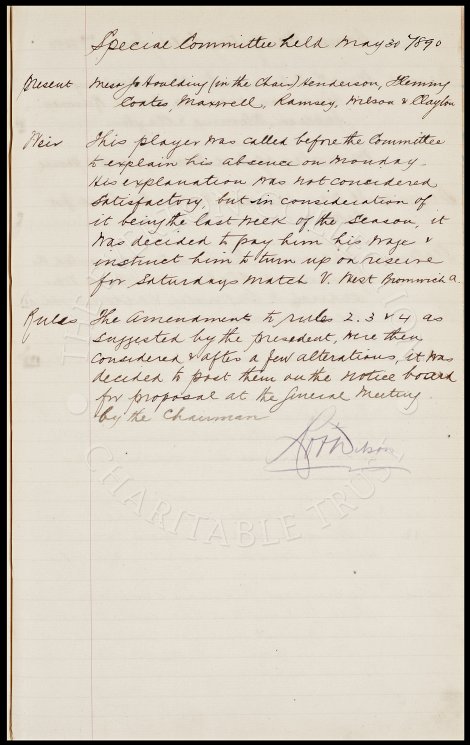 Special Committee held May 30 1890
Present Messrs Houlding (in the Chair) Henderson, Fleming
Coates, Maxwell, Ramsey, Wilson & Clayton
Weir This player was called before the Committee
to explain his absence on Monday.
His explanation was not considered
satisfactory, but in consideration of
it being the last week of the season, it
was decided to pay him his wage &
instruct him to turn up on reserve
for Saturdays Match V. West Bromwich A.
Rules The Amendment to rules 2. 3 & 4 as
suggested by the presedent, were then
considered & after a few alterations, it was
decided to post them on the Notice board
for proposal at the General Meeting
by the Chairman
Wilson
CHARITABLE TRUST